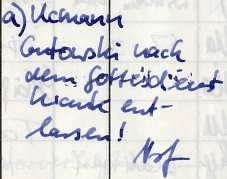 a) Ucmann
Gutowski nach
dem Gottesdienst
krank ent-
lassen!